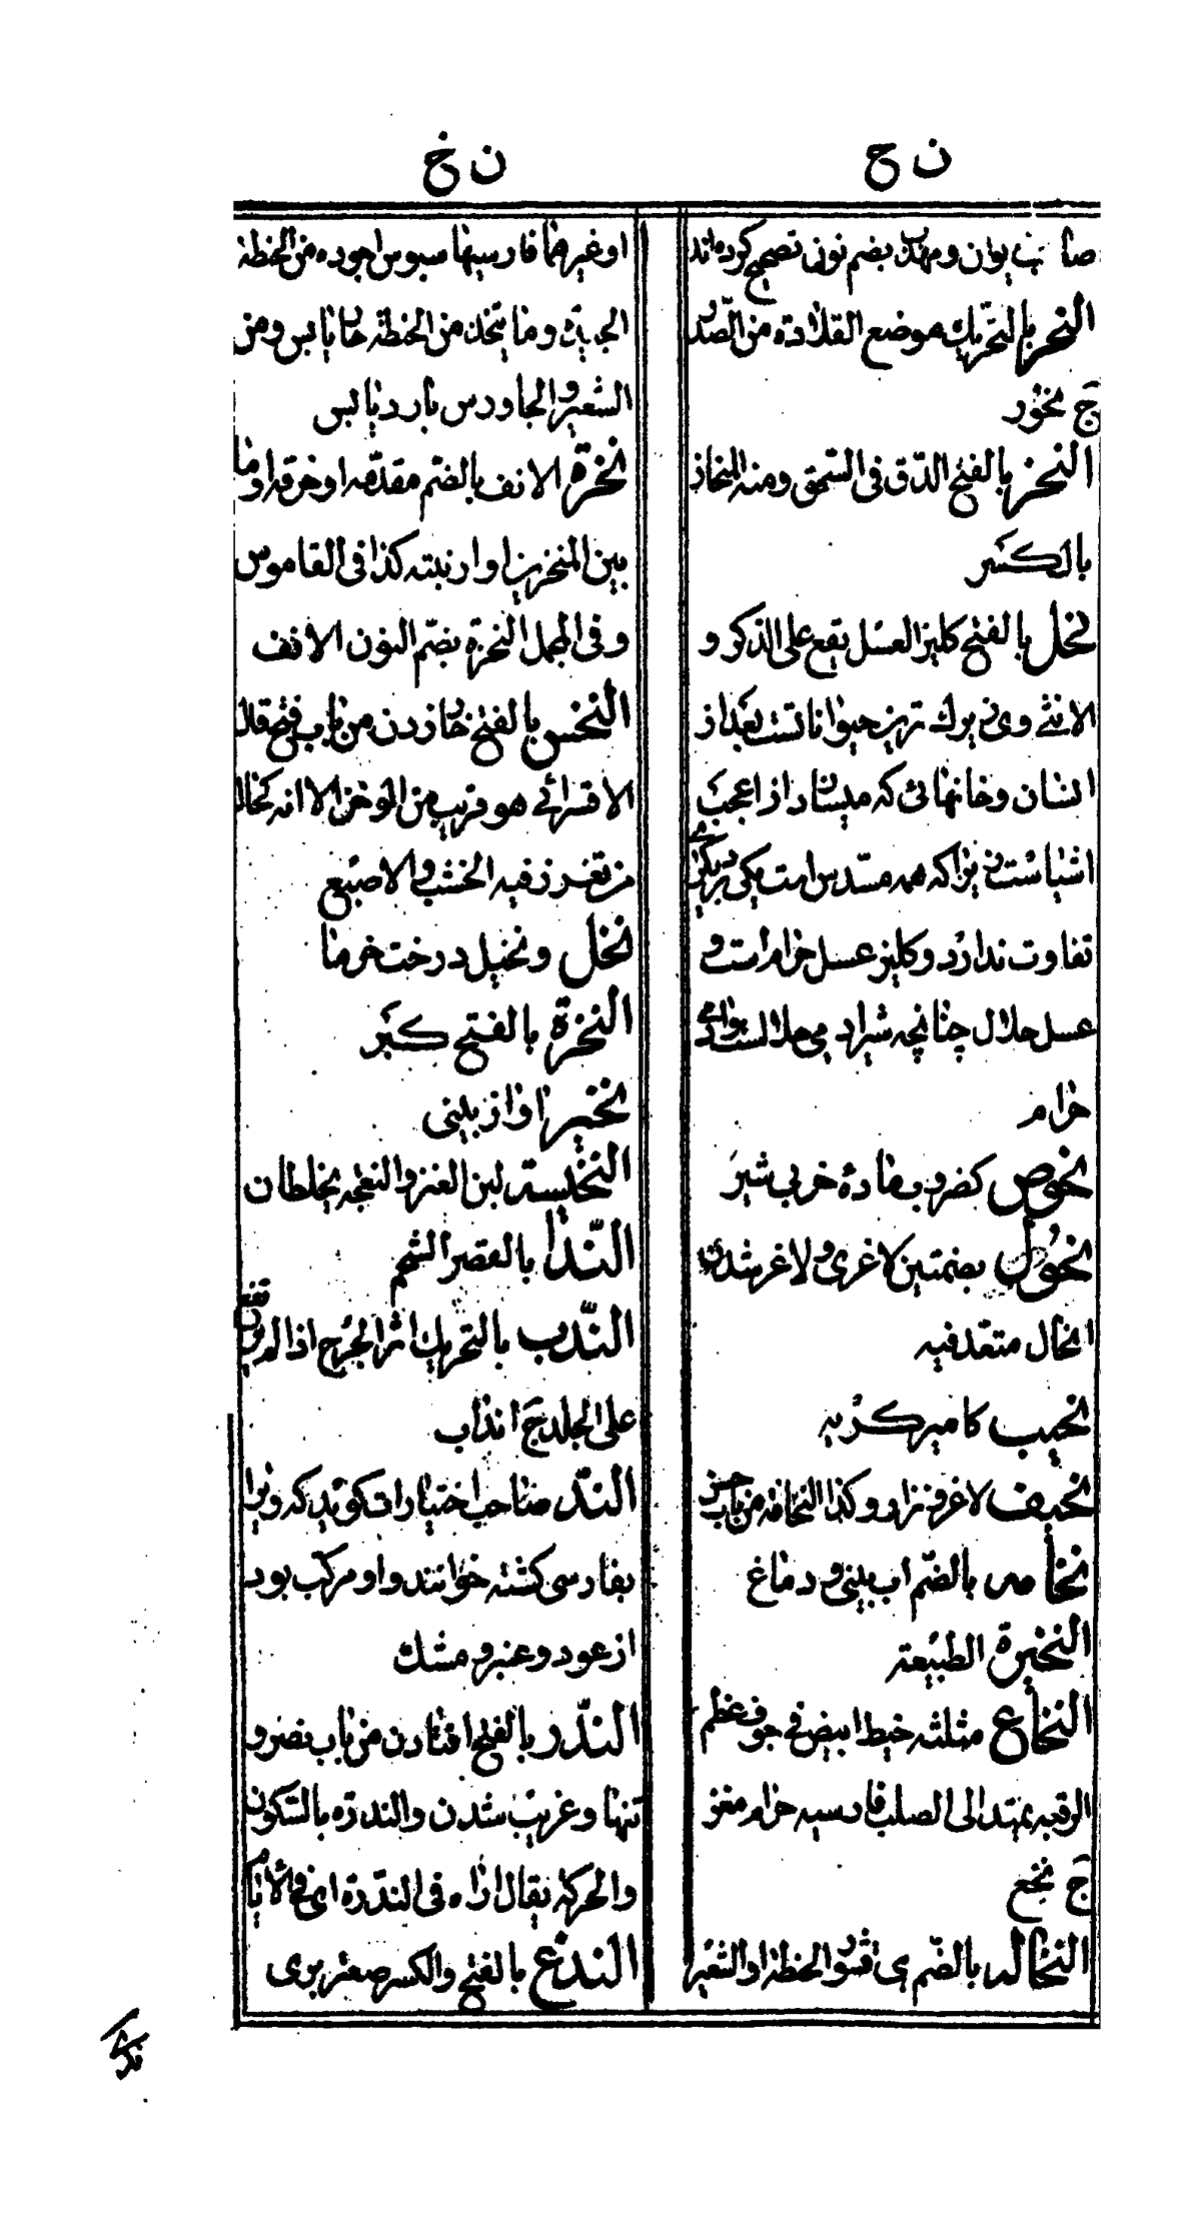 ن ح
صاحب یوان ومهذب بضم نون تصحیح کرده اند
النحر بالتحریک موضع القلادة من الصّدر
ج نحور
النحز بالفتح الدّق فی السّحق ومنه المنحاز
بالکسر
نحل بالفتح کلیز العسل یقع علی الذکر و
الانثی وی بزرك ترین حیوانات است بعد از
انسان وخانهائی که میسازد از اعجب
اشیاست زیرا که همه مسدّس است یکی بر یکی
تفاوت ندارد وکلیز عسل حرام است و
عسل حلال چنانچه شیر ادمی حلالست وادمی
حرام
نحوص کضروب مادهٔ خر بی شیر
نحول بضمتین لاغری ولاغر شدن
انحال متعد فیه
نحیب کامیر کریه
نحیف لاغر ونزار وکذا النحافة من باب حسن
نخامه بالضّم اب بینی و دماغ
النخیزة الطبیعة
النخاع مثلثه خیط ابیض فی جوف عظم
الرقبه یمتد الی الصلب فارسیه حرام مغز
ج نخع
النخاله بالضّم ی قشور الحنطة او الشعیر
ن خ
او غیرهما فارسیها سبوس اجوده من الحنطة
الجدیدة وما یتخذ من الحنطة حار یابس ومن
الشعیر والجاورس بارد یابس
نخرة الانف بالضم مقدّمه او خرقه او ما
بین المنخرین او ارنبته کذا فی القاموس
وفی المجمل النخرة بضم النون الانف
النخس بالفتح خار زدن من باب فتح قال
الاقسرائی هو قریب من الوخز الا انه کحال
من تغرز فیه الخشب والاصبع
نخل ونخیل درخت خرما
النخزة بالفتح کبر
نخیر اواز بینی
النخیسة لبن العنز والنعجه یخلطان
النّدا بالقصر الشحم
النّدب بالتحریك اثر الجرح اذا لم یرتفع
علی الجلد ج انداب
النّد صاحب اختیارات کوید که ویرا
بفارسی کشته خوانند واو مرکب بود
از عود و عنبر و مشك
النّدر بالفتح افتادن من باب نصر و
تنها وغریب شدن والندرة بالسّکون
والحرکه یقال اراه فی الندرة ای فی الایام
الندغ بالفتح والکسر صعتر بری